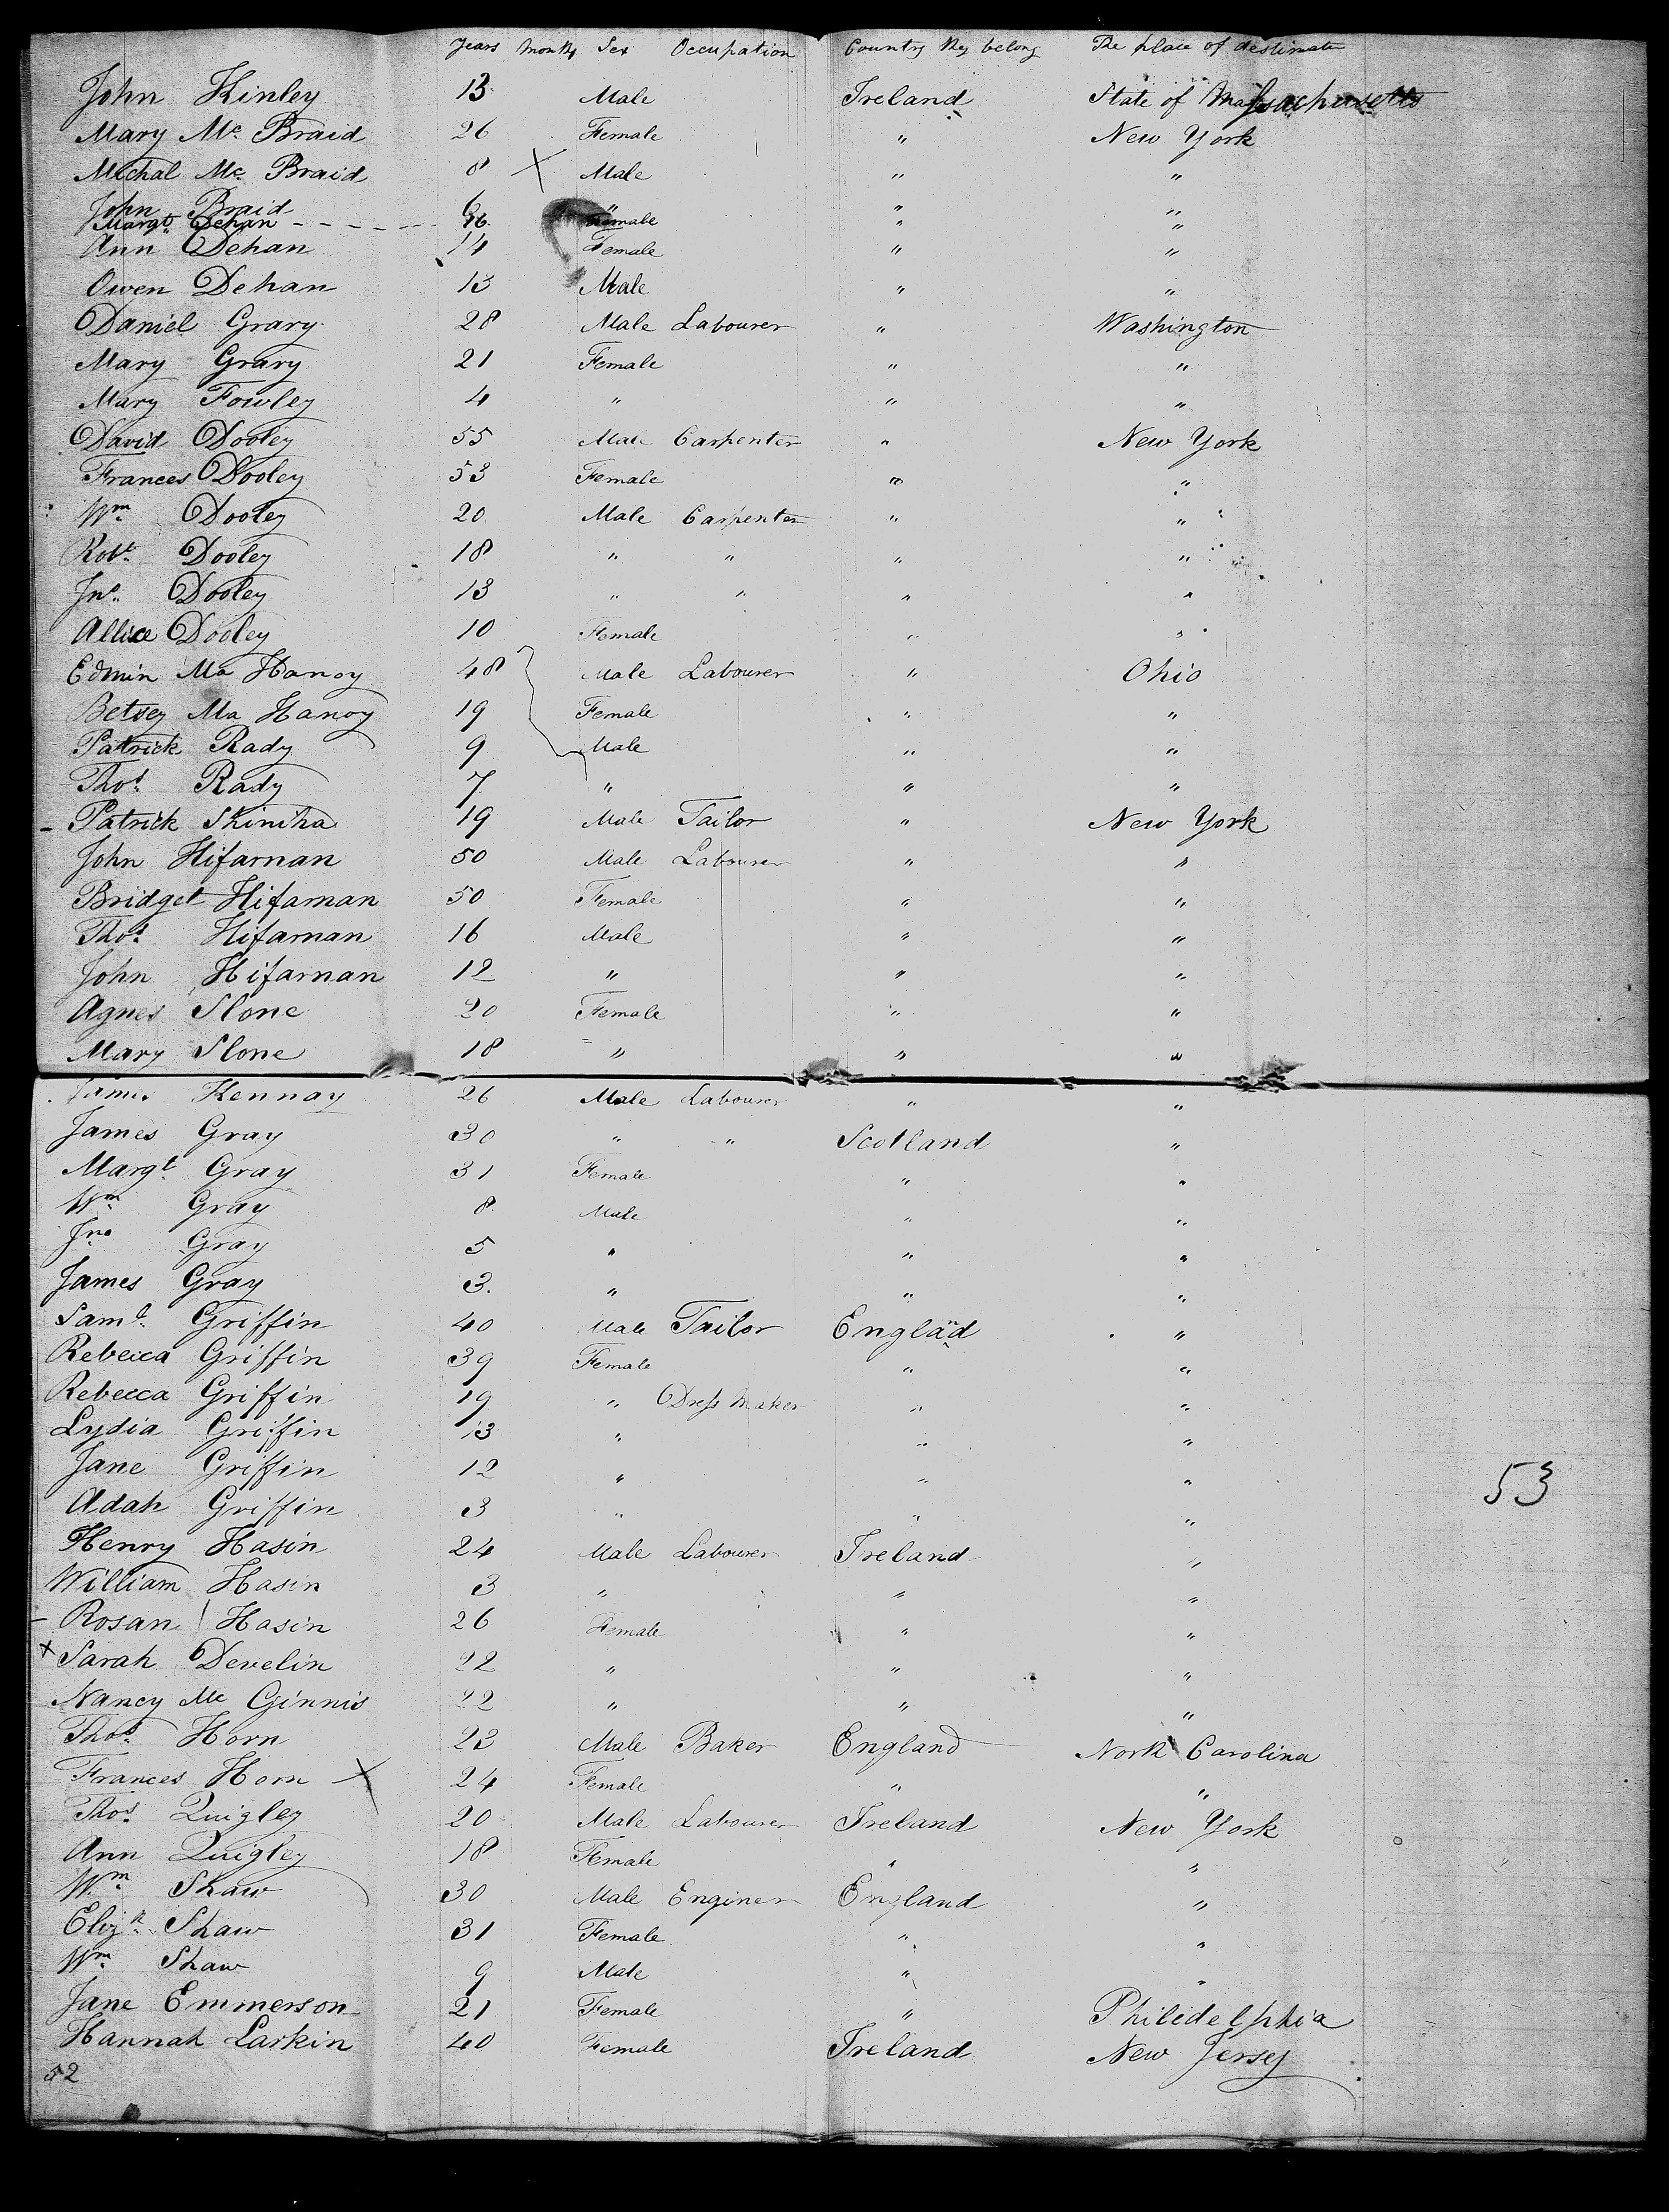 Years Months Sex Occupation Country they belong The place of destination
John Kinley 13 Male Ireland State of Massachusetts
Mary Mc Braid 26 Female " New York
Michal Mc Braid 8 Male " "
John Braid 6 " " "
Margt Dehan 46 Female " "
Ann Dehan 14 Female " "
Owen Dehan 13 Male " "
Daniel Grary 28 Male Labourer " Washington
Mary Grary 21 Female " "
Mary Fowley 4 " " "
David Dooley 55 Male Carpenter " New York
Frances Dooley 53 Female " "
Wm Dooley 20 Male Carpenter " "
Robt Dooley 18 " " " "
Jno Dooley 13 " " " "
Allice Dooley 10 Female " "
Edmin Ma Hanoy 48 Male Labourer " Ohio
Betsey Ma Hanoy 19 Female " "
Patrick Rady 9 Male " "
Thos Rady 7 " " "
Patrick Skiniha 19 Male Tailor " New York
John Hifarnan 50 Male Labourer " "
Bridget Hifarnan 50 Female " "
Thos Hifarnan 16 Male " "
John Hifarnan 12 " " "
Agnes Slone 20 Female " "
Mary Slone 18 " " "
James Kennay 26 Male Labourer " "
James Gray 30 " " Scotland "
Margt Gray 31 Female " "
Wm Gray 8 Male " "
Jno Gray 5 " " "
James Gray 3 " " "
Saml Griffin 40 Male Tailor England "
Rebecca Griffin 39 Female " "
Rebecca Griffin 19 " Dress Maker " "
Lydia Griffin 13 " " "
Jane Griffin 12 " " "
Adah Griffin 3 " " "
53
Henry Hasin 24 Male Labourer Ireland "
William Hasin 3 " " "
Rosan Hasin 26 Female " "
Sarah Develin 22 " " "
Nancy Mc Ginnis 22 " " "
Thos Horn 23 Male Baker England North Carolina
Frances Horn 24 Female " "
Thos Quigley 20 Male Labourer Ireland New York
Ann Quigley 18 Female " "
Wm Shaw 30 Male Enginer England "
Elizh Shaw 31 Female " "
Wm Shaw 9 Male " "
Jane Emmerson 21 Female " Philidelphia
Hannah Larkin 40 Female Ireland New Jersey
52